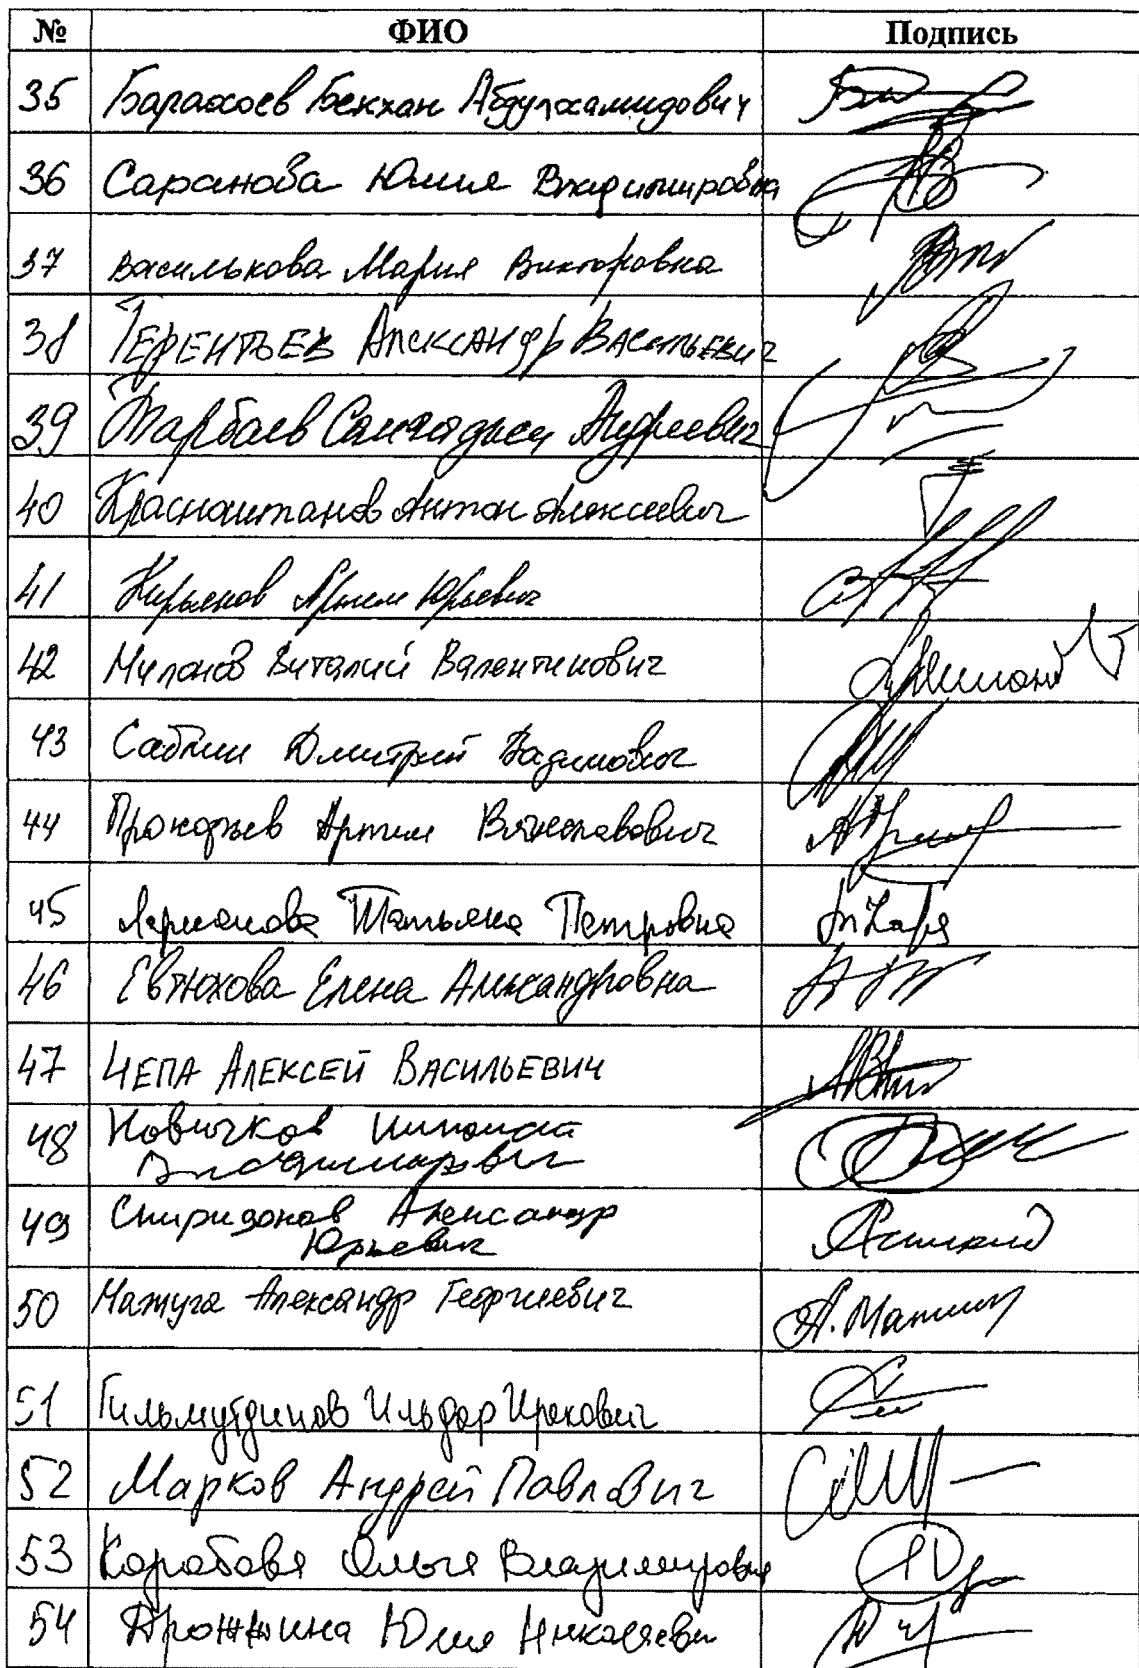 № ФИО Подпись
35 Барахоев Бекхан Абдулхамидович
36 Саранова Юлия Владимировна
37 Василькова Мария Викторовна
38 ТЕРЕНТЬЕВ АЛЕКСАНДР ВАСИЛЬЕВИЧ
39 Тарбаев Сангаджи Андреевич
40 Красноштанов Антон Алексеевич
41 Кирьянов Артём Юрьевич
42 Милонов Виталий Валентинович
43 Саблин Дмитрий Вадимович
44 Прокофьев Артем Вячеславович
45 Ларионова Татьяна Петровна
46 Евтюхова Елена Александровна
47 ЧЕПА АЛЕКСЕЙ ВАСИЛЬЕВИЧ
48 Новичков Николай
Владимирович
49 Спиридонов Александр
Юрьевич
50 Мажуга Александр Георгиевич А.
51 Гильмутдинов Ильдар Ирекович
52 Марков Андрей Павлович
53 Коробова Ольга Владимировна
54 Дрожжина Юлия Николаевн